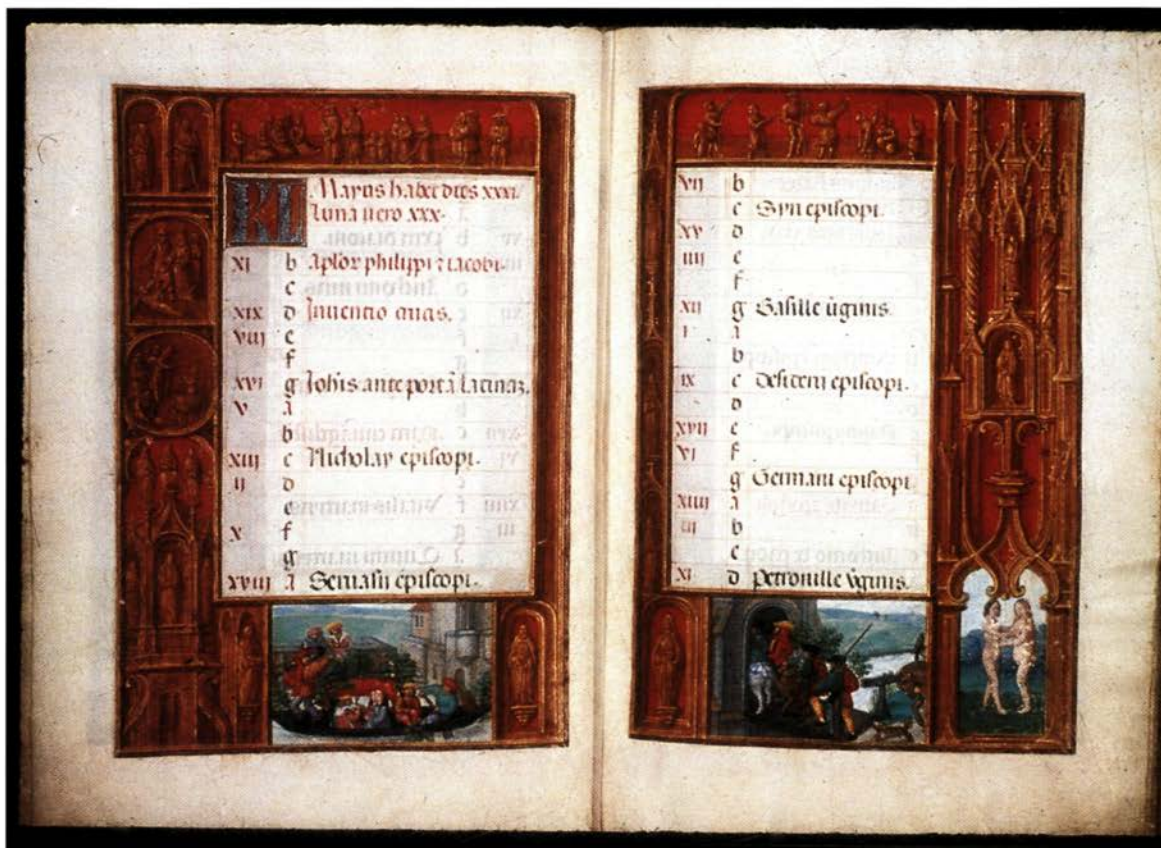 KL Mayus habet dies xxxi.
Luna vero xxx.
xi b Aplor philippi z iacobi.
c
xix d Inventio
viij e
f
xvi g Iohis ante portā Latinaz.
v A
b
xiij c Nicholay episcopi.
ij d
e
x f
g
xviij A Servasii episcopi.
vij b
c Syri episcopi.
xv d
iiij e
f
xij g Basille v̄ginis.
i A
b
ix c Desiterii episcopi.
d
xvij e
vi f
g Germani episcopi.
xiiij A
iij b
c
xi d Petronille v̄ginis.